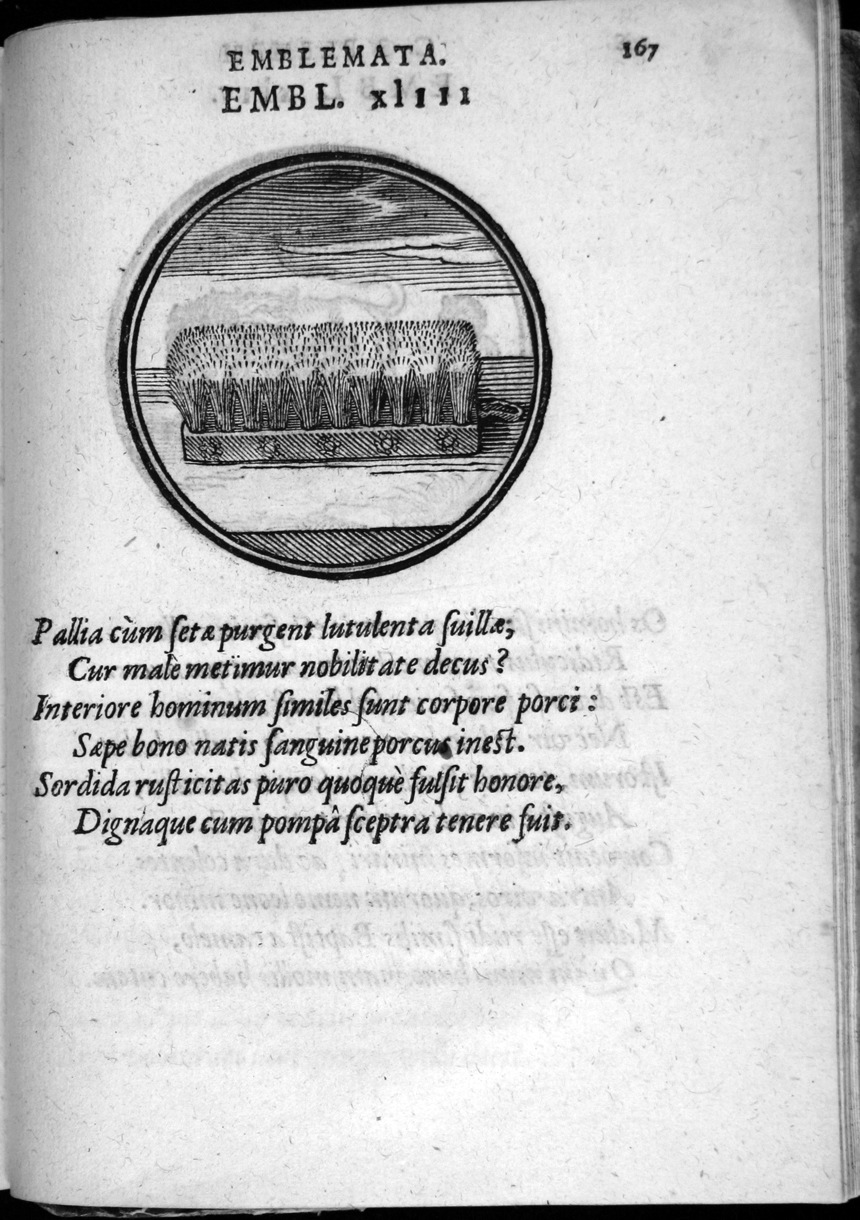 EMBLEMATA.
167
EMBL. xlııı
Pallia cùm ſetæ purgent lutulenta ſuillæ,
Cur malè metimur nobilitate decus?
Interiore hominum ſimiles ſunt corpore porci:
Sæpe bono natis ſanguine porcus ineſt.
Sordida ruſticitas puro quoquè fulſit honore,
Dignaque cum pompâ ſceptra tenere fuit.